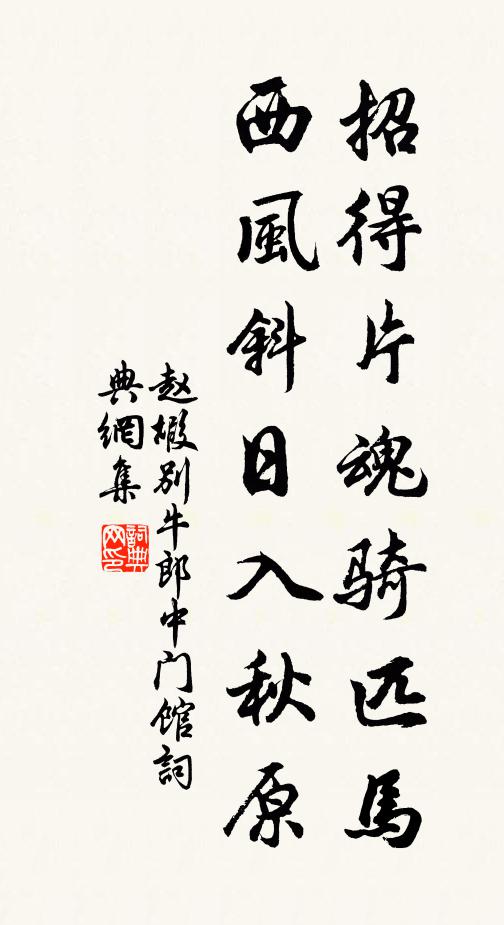 招得片魂骑匹馬
西風斜日入秋原
赵嘏别牛郎中门馆詞
典網集
詞典网印